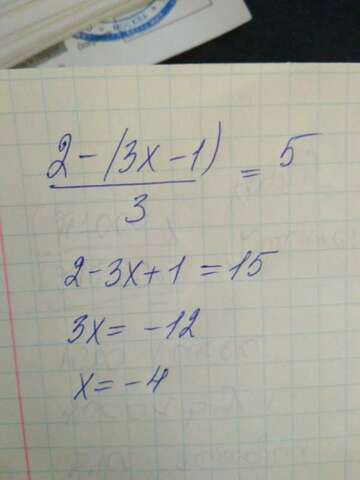 2-(3x-1)
3
= 5
2-3x+1=15
3x= -12
x= -4